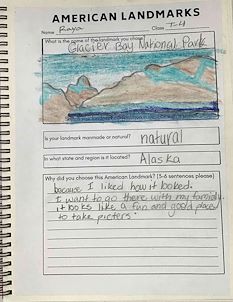 AMERICAN LANDMARKS
Name Raya Class T-4
What is the name of the landmark you chose?
Glacier Bay National Park
Is your landmark manmade or natural? natural
In what state and region is it located? Alaska
Why did you choose this American Landmark? (5-6 sentences please)
because I liked how it looked.
I want to go there with my family.
it looks like a fun and good place
to take picters.